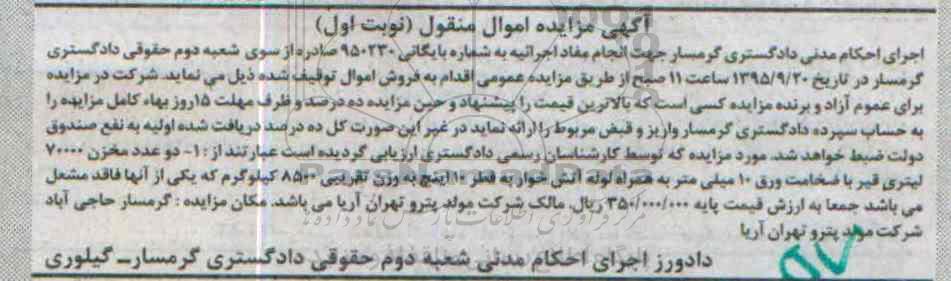 آگهی مزایده اموال منقول (نوبت اول)
اجرای احکام مدنی دادگستری گرمسار جهت انجام مفاد اجرائیه به شماره بایگانی ۹۵۰۲۳۰ صادره از سوی شعبه دوم حقوقی دادگستری
گرمسار در تاریخ ۱۳۹۵/۹/۲۰ ساعت ۱۱ صبح از طریق مزایده عمومی اقدام به فروش اموال توقیف شده ذیل می نماید. شرکت در مزایده
برای عموم آزاد و برنده مزایده کسی است که بالاترین قیمت را پیشنهاد و حین مزایده ده درصد و ظرف مهلت ۱۵روز بهاء کامل مزایده را
به حساب سپرده دادگستری گرمسار واریز و قبض مربوط را ارائه نماید در غیر این صورت کل ده درصد دریافت شده اولیه به نفع صندوق
دولت ضبط خواهد شد. مورد مزایده که توسط کارشناسان رسمی دادگستری ارزیابی گردیده است عبارتند از : ۱- دو عدد مخزن ۷۰۰۰۰
لیتری قیر با ضخامت ورق ۱۰ میلی متر به همراه لوله آتش خوار به قطر ۱۰ اینچ به وزن تقریبی ۸۵۰۰ کیلوگرم که یکی از آنها فاقد مشعل
می باشد جمعا به ارزش قیمت پایه ۳۵۰/۰۰۰/۰۰۰ ریال. مالک شرکت مولد پترو تهران آریا می باشد. مکان مزایده : گرمسار حاجی آباد
شرکت مولد پترو تهران آریا
دادورز اجرای احکام مدنی شعبه دوم حقوقی دادگستری گرمسار_ گیلوری